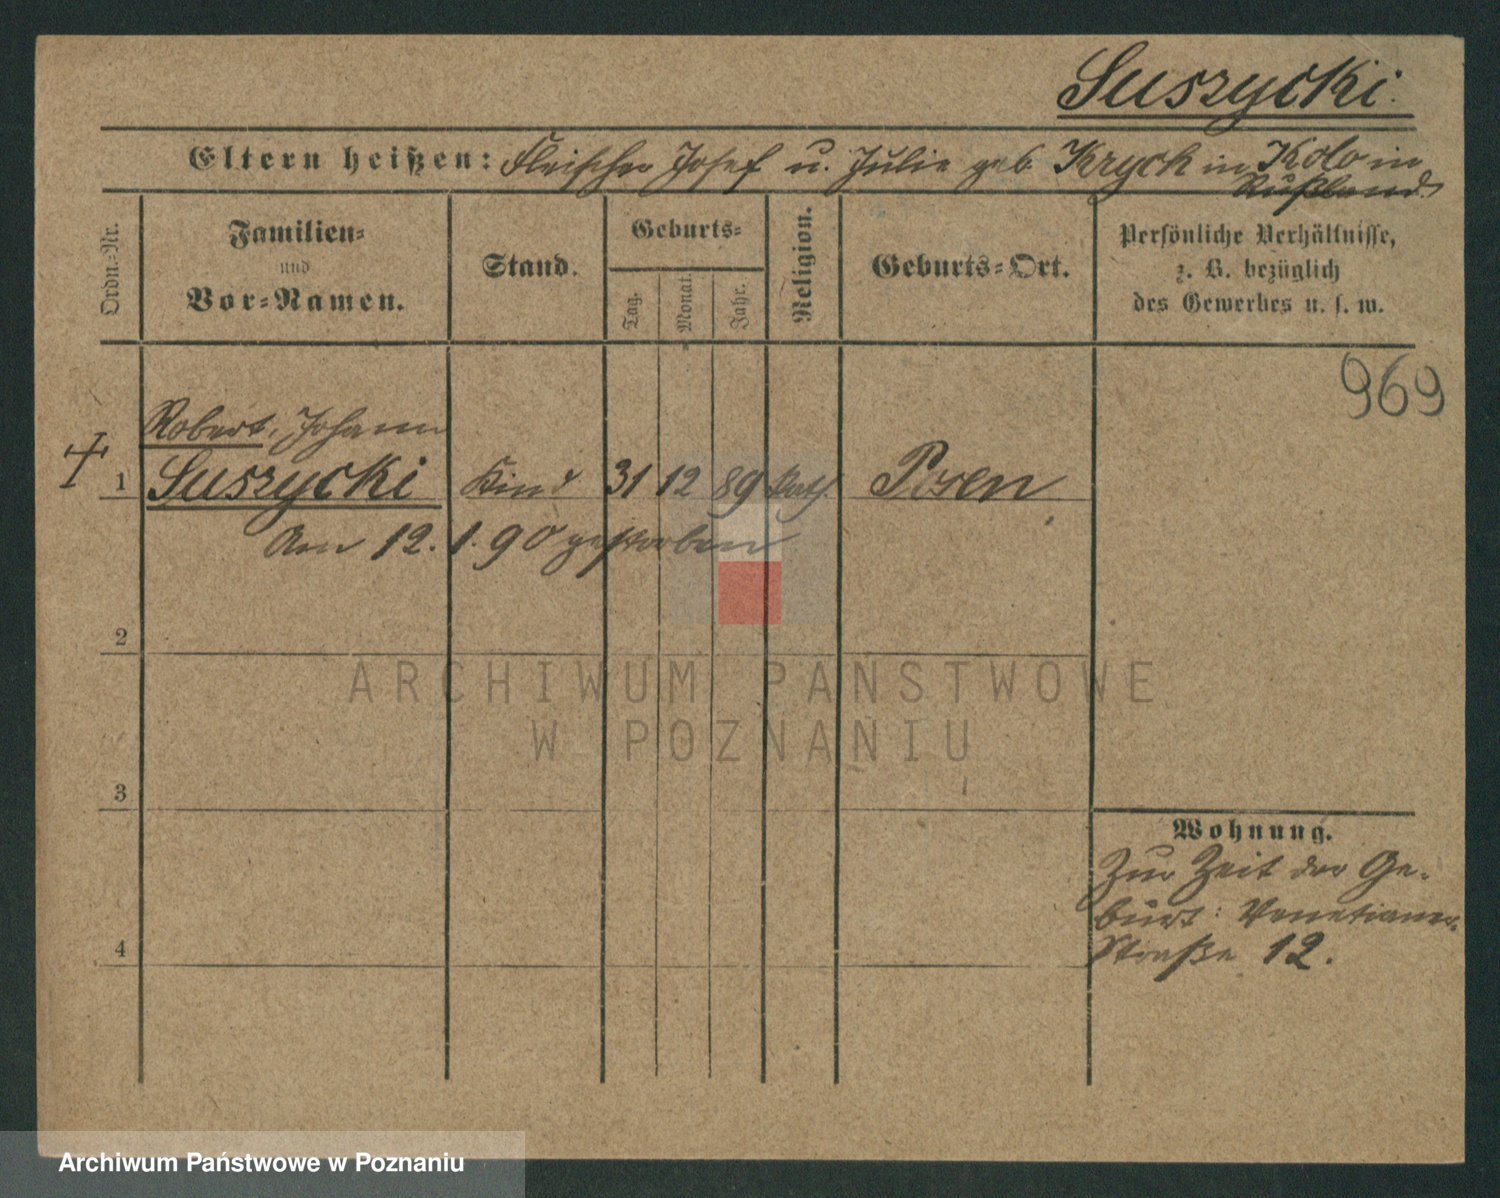 Suszycki.
Eltern heißen: Fleischer Josef u. Julie geb. Kryck in Kolo in
Rußland.
Ordn.-Nr.
Familien-
und
Vor-Namen.
Stand.
Geburts-
Tag.
Monat.
Jahr.
Religion.
Geburts-Ort.
Persönliche Verhältnisse,
z. B. bezüglich
des Gewerbes u. s. w.
969
Robert, Johann
1 Suszycki Kind 31 12 89 kath. Posen
Am 12. 1. 90 gestorben
2
3
4
Wohnung.
Zur Zeit der Ge-
burt: Venetianer-
Straße 12.
ARCHIWUM PAŃSTWOWE
W POZNANIU
Archiwum Państwowe w Poznaniu